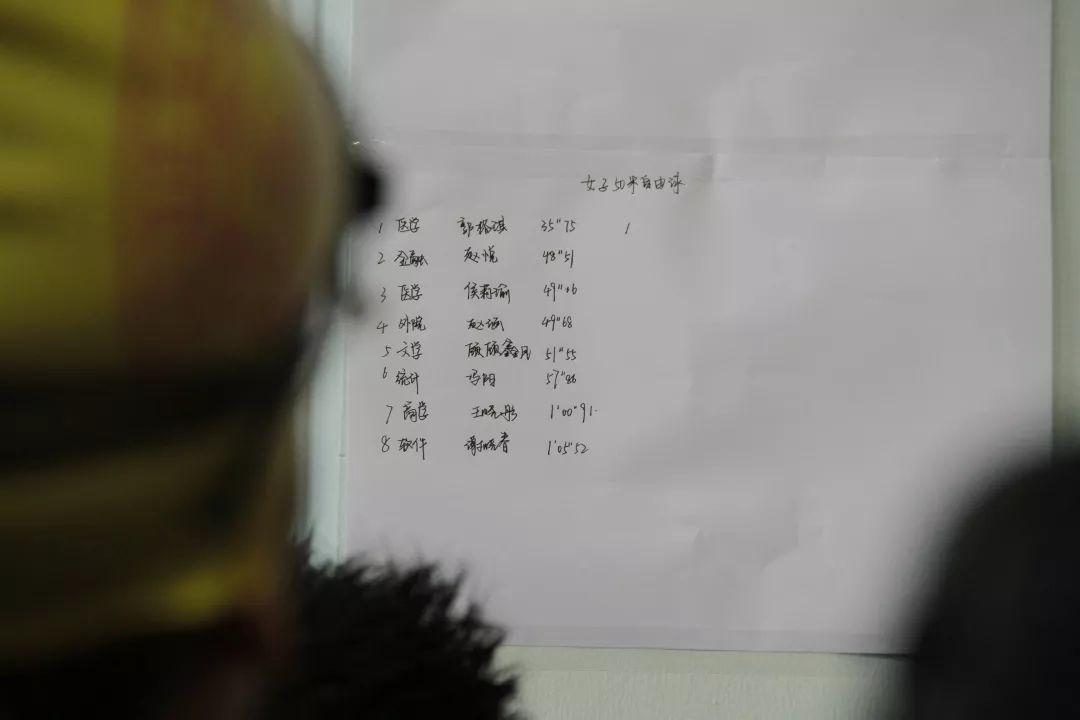 女子50米自由泳
1 医学 郭 琪 35"75 1
2 金融 赵悦 48"51
3 医学 侯莉瑜 49"
4 外院 赵 49"68
5 文学 51"55
6 统计 冯 57"
7 商学 王晓彤 1'00"91.
8 软件 谢晓睿 1'05"52